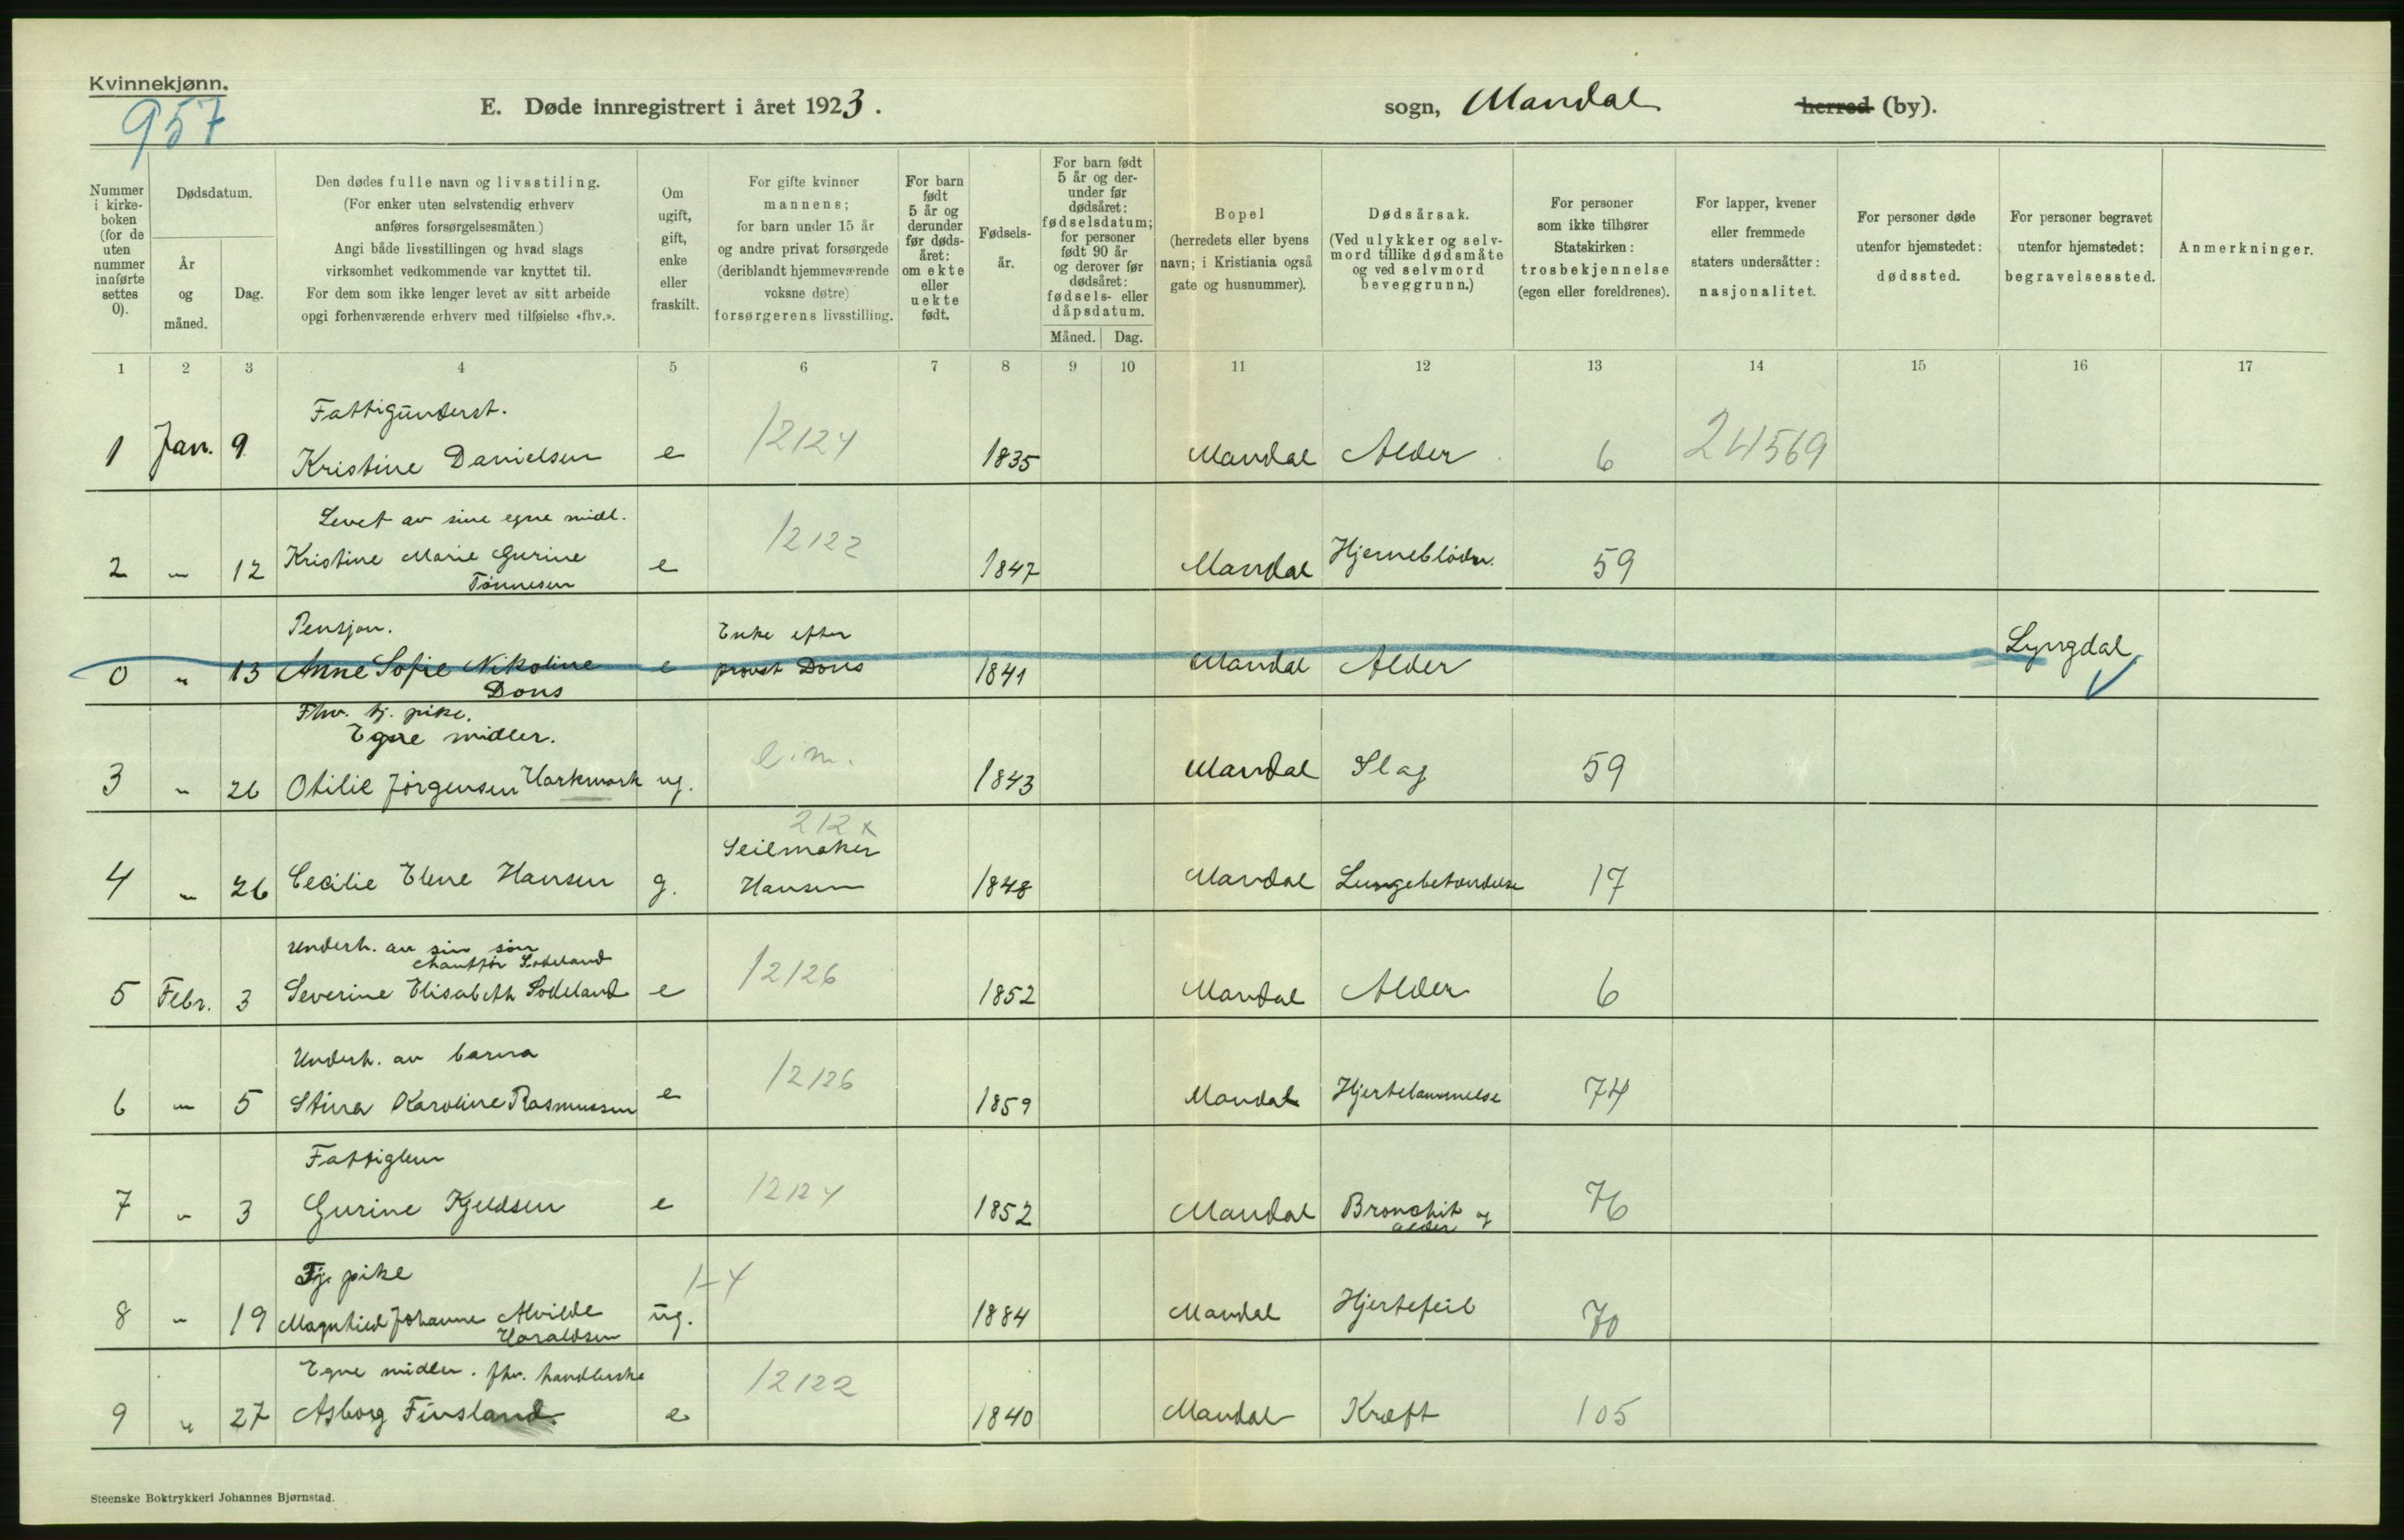 Kvinnekjønn.
957
E. Døde innregistrert i året 1923.
sogn, Mandal herred (by).
Nummer i kirke-boken (for de uten nummer innførte settes 0).
Dødsdatum.
År og måned.
Dag.
Den dødes fulle navn og livsstiling.
(For enker uten selvstendig erhverv
anføres forsørgelsesmåten)
Angi både livsstillingen og hvad slags
virksomhet vedkommende var knyttet til.
For dem som ikke lenger levet av sitt arbeide
opgi forhenværende erhverv med tilføielse «fhv.».
Om ugift, gift, enke eller fraskilt.
For gifte kvinner
mannens;
for barn under 15 år
og andre privat forsørgede
(deriblandt hjemmeværende
voksne døtre)
forsørgerens livsstilling.
For barn født 5 år og derunder før døds-året: om ekte eller uekte født.
Fødsels-år.
For barn født
5 år og der-
under før
dødsåret:
fødselsdatum;
for personer
født 90 år
og derover før
dødsåret:
fødsels- eller
dåpsdatum.
Måned. Dag.
Bopel
(herredets eller byens
navn; i Kristiania også
gate og husnummer).
Dødsårsak.
(Ved ulykker og selv-
mord tillike dødsmåte
og ved selvmord
beveggrunn.)
For personer
som ikke tilhører
Statskirken:
trosbekjennelse
(egen eller foreldrenes).
For lapper, kvener
eller fremmede
staters undersåtter:
nasjonalitet.
For personer døde
utenfor hjemstedet:
dødssted.
For personer begravet
utenfor hjemstedet:
begravelsessted.
Anmerkninger.
1 2 3 4 5 6 7 8 9 10 11 12 13 14 15 16 17
Fattigunderst.
1 Jan. 9 Kristine Danielsen e 12124 1835 Mandal Alder 6 24569
Levet av sine egne midl.
2 " 12 Kristine Marie Gurine e 12122 1847 Mandal Hjerneblødn. 59
Tønnesen
Pensjon. Enke efter
0 " 13 Anne Sofie Nikoline e provst Dons 1841 Mandal Alder Lyngdal
Dons
Fhv. tj. pike.
Egne midler.
3 " 26 Otilie Jørgensen Harkmark ug. e.m. 1843 Mandal Slag 59
212x
Seilmaker
4 " 26 Cecilie Elene Hansen g. Hansen 1848 Mandal Lungebetændelse 17
Underh. av sin søn
chauffør Sodeland
5 Febr. 3 Severine Elisabeth Sodeland e 12126 1852 Mandal Alder 6
Underh. av barna
6 " 5 Stina Karoline Rasmussen e 12126 1859 Mandal Hjertelammelse 74
Fattiglem
7 " 3 Gurine Kjeldsen e 12124 1852 Mandal Bronchit og 76
alder
Tj. pike 1-4
8 " 19 Magnhild Johanne Alvilde ug. 1884 Mandal Hjertefeil 70
Haraldsen
Egne midler. fhv. handlerske
9 " 27 Asborg Finsland. e 12122 1840 Mandal Kræft 105
Steenske Boktrykkeri Johannes Bjørnstad.